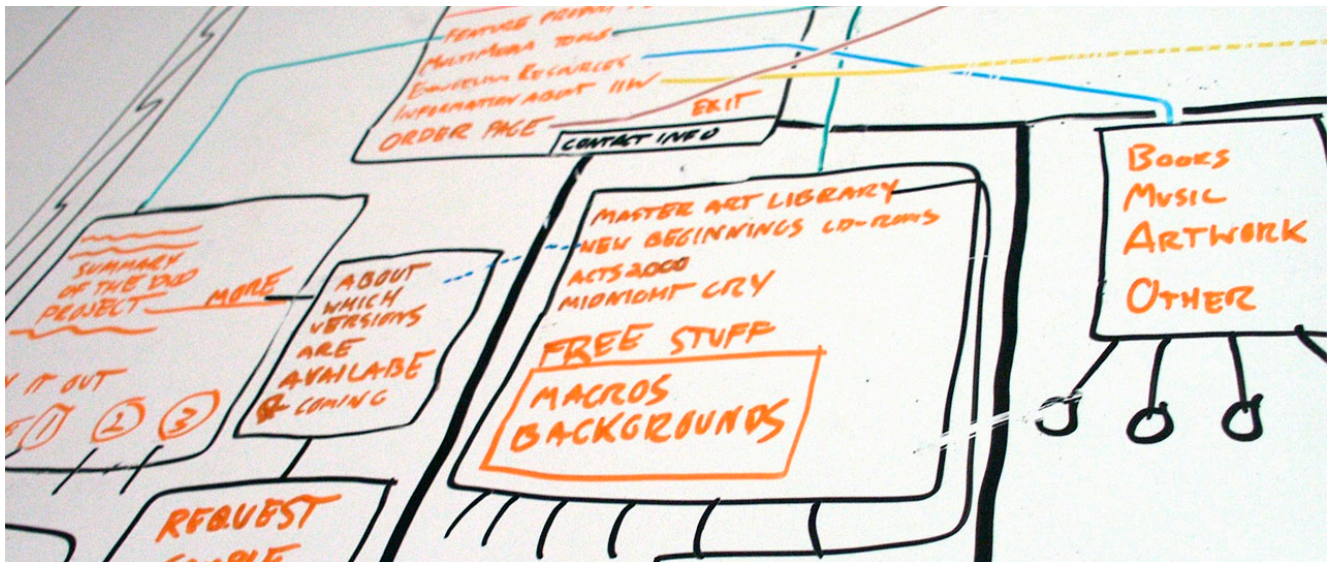 FEATURE PRODUCT
MULTIMEDIA TOOLS
EVANGELISM RESOURCES
INFORMATION ABOUT IIW
ORDER PAGE
EXIT
CONTACT INFO
SUMMARY
OF THE DVD
PROJECT MORE
IT OUT
1 2 3
ABOUT
WHICH
VERSIONS
ARE
AVAILABE
COMING
REQUEST
MASTER ART LIBRARY
NEW BEGINNINGS CD-ROMS
ACTS 2000
MIDNIGHT CRY
FREE STUFF
MACROS
BACKGROUNDS
BOOKS
MUSIC
ARTWORK
OTHER